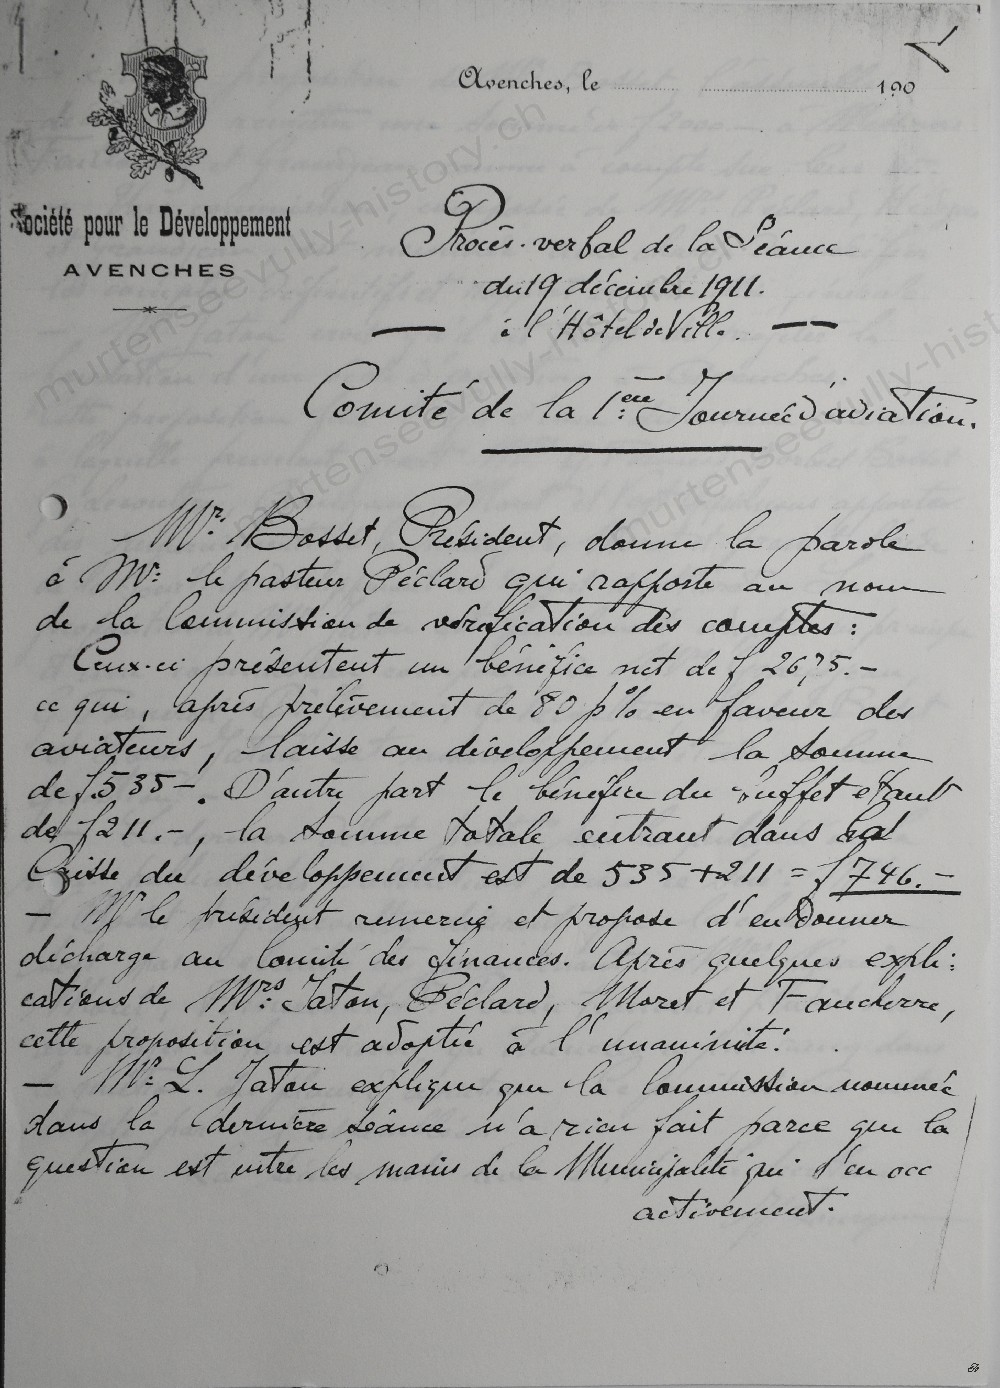 Avenches, le 190
Société pour le Développement
AVENCHES
Procès-verbal de la Séance
du 19 décembre 1911.
à l'Hôtel de Ville.
Comité de la 1ère Journée d'aviation.
Mr. Bosset, Président, donne la parole
à Mr. le pasteur Péclard qui rapporte au nom
de la Commission de vérification des comptes :
Ceux-ci présentent un bénéfice net de f 2675.-
ce qui, après prélèvement de 80 p% en faveur des
aviateurs, laisse au développement la somme
de f. 535 -. D'autre part le bénéfice du buffet étant
de f 211.-, la somme totale entrant dans la
Caisse du développement est de 535 + 211 = f 746.-
- Mr le président remercie et propose d'en donner
décharge au Comité des finances. Après quelques expli-
cations de Mrs Jaton, Péclard, Moret et Faucherre,
cette proposition est adoptée à l'unanimité.
- Mr. L. Jaton explique que la Commission nommée
dans la dernière séance n'a rien fait parce que la
question est entre les mains de la Municipalité qui s'en occ
activement.
murtenseevully-history.ch
murtenseevully-history.ch
murtenseevully-history.ch